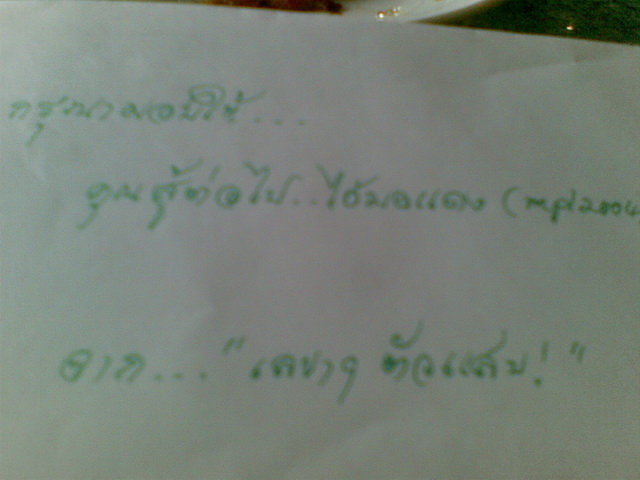 กรุณามอบให้...
คุณสู้ต่อไป..ไอ้มดแดง (mpl2004
จาก... "เลขาฯ ตัวแสบ!"